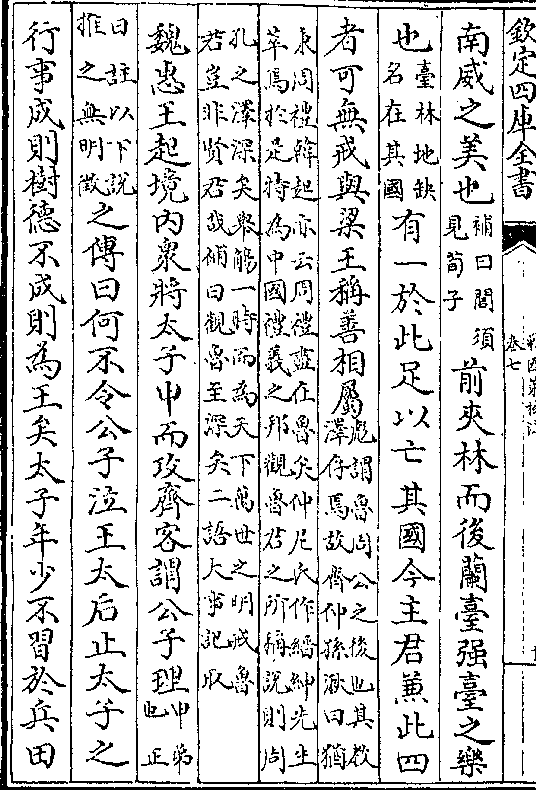 欽定四庫全書
卷七
南威之美也補曰閭須見荀子前夾林而後蘭臺强臺之樂
也臺林地缺名在其國有一於此足以亡其國今主君兼此四
者可無戒與梁王稱善相屬彪謂魯周公之後也其敎澤存焉故齊仲孫湫曰猶
秉周禮韓起亦云周禮盡在魯矣仲尼氏作縉紳先生萃焉於是特為中國禮義之邦觀魯君之所稱說則周
孔之澤深矣舉觴一時而為天下萬世之明戒魯君豈非賢君哉補曰觀魯至深矣二語大事記取
魏惠王起境内衆將太子申而攻齊客謂公子理申弟也正
曰註以下說推之無明徵之傳曰何不令公子泣王太后止太子之
行事成則樹德不成則為王矣太子年少不習於兵田